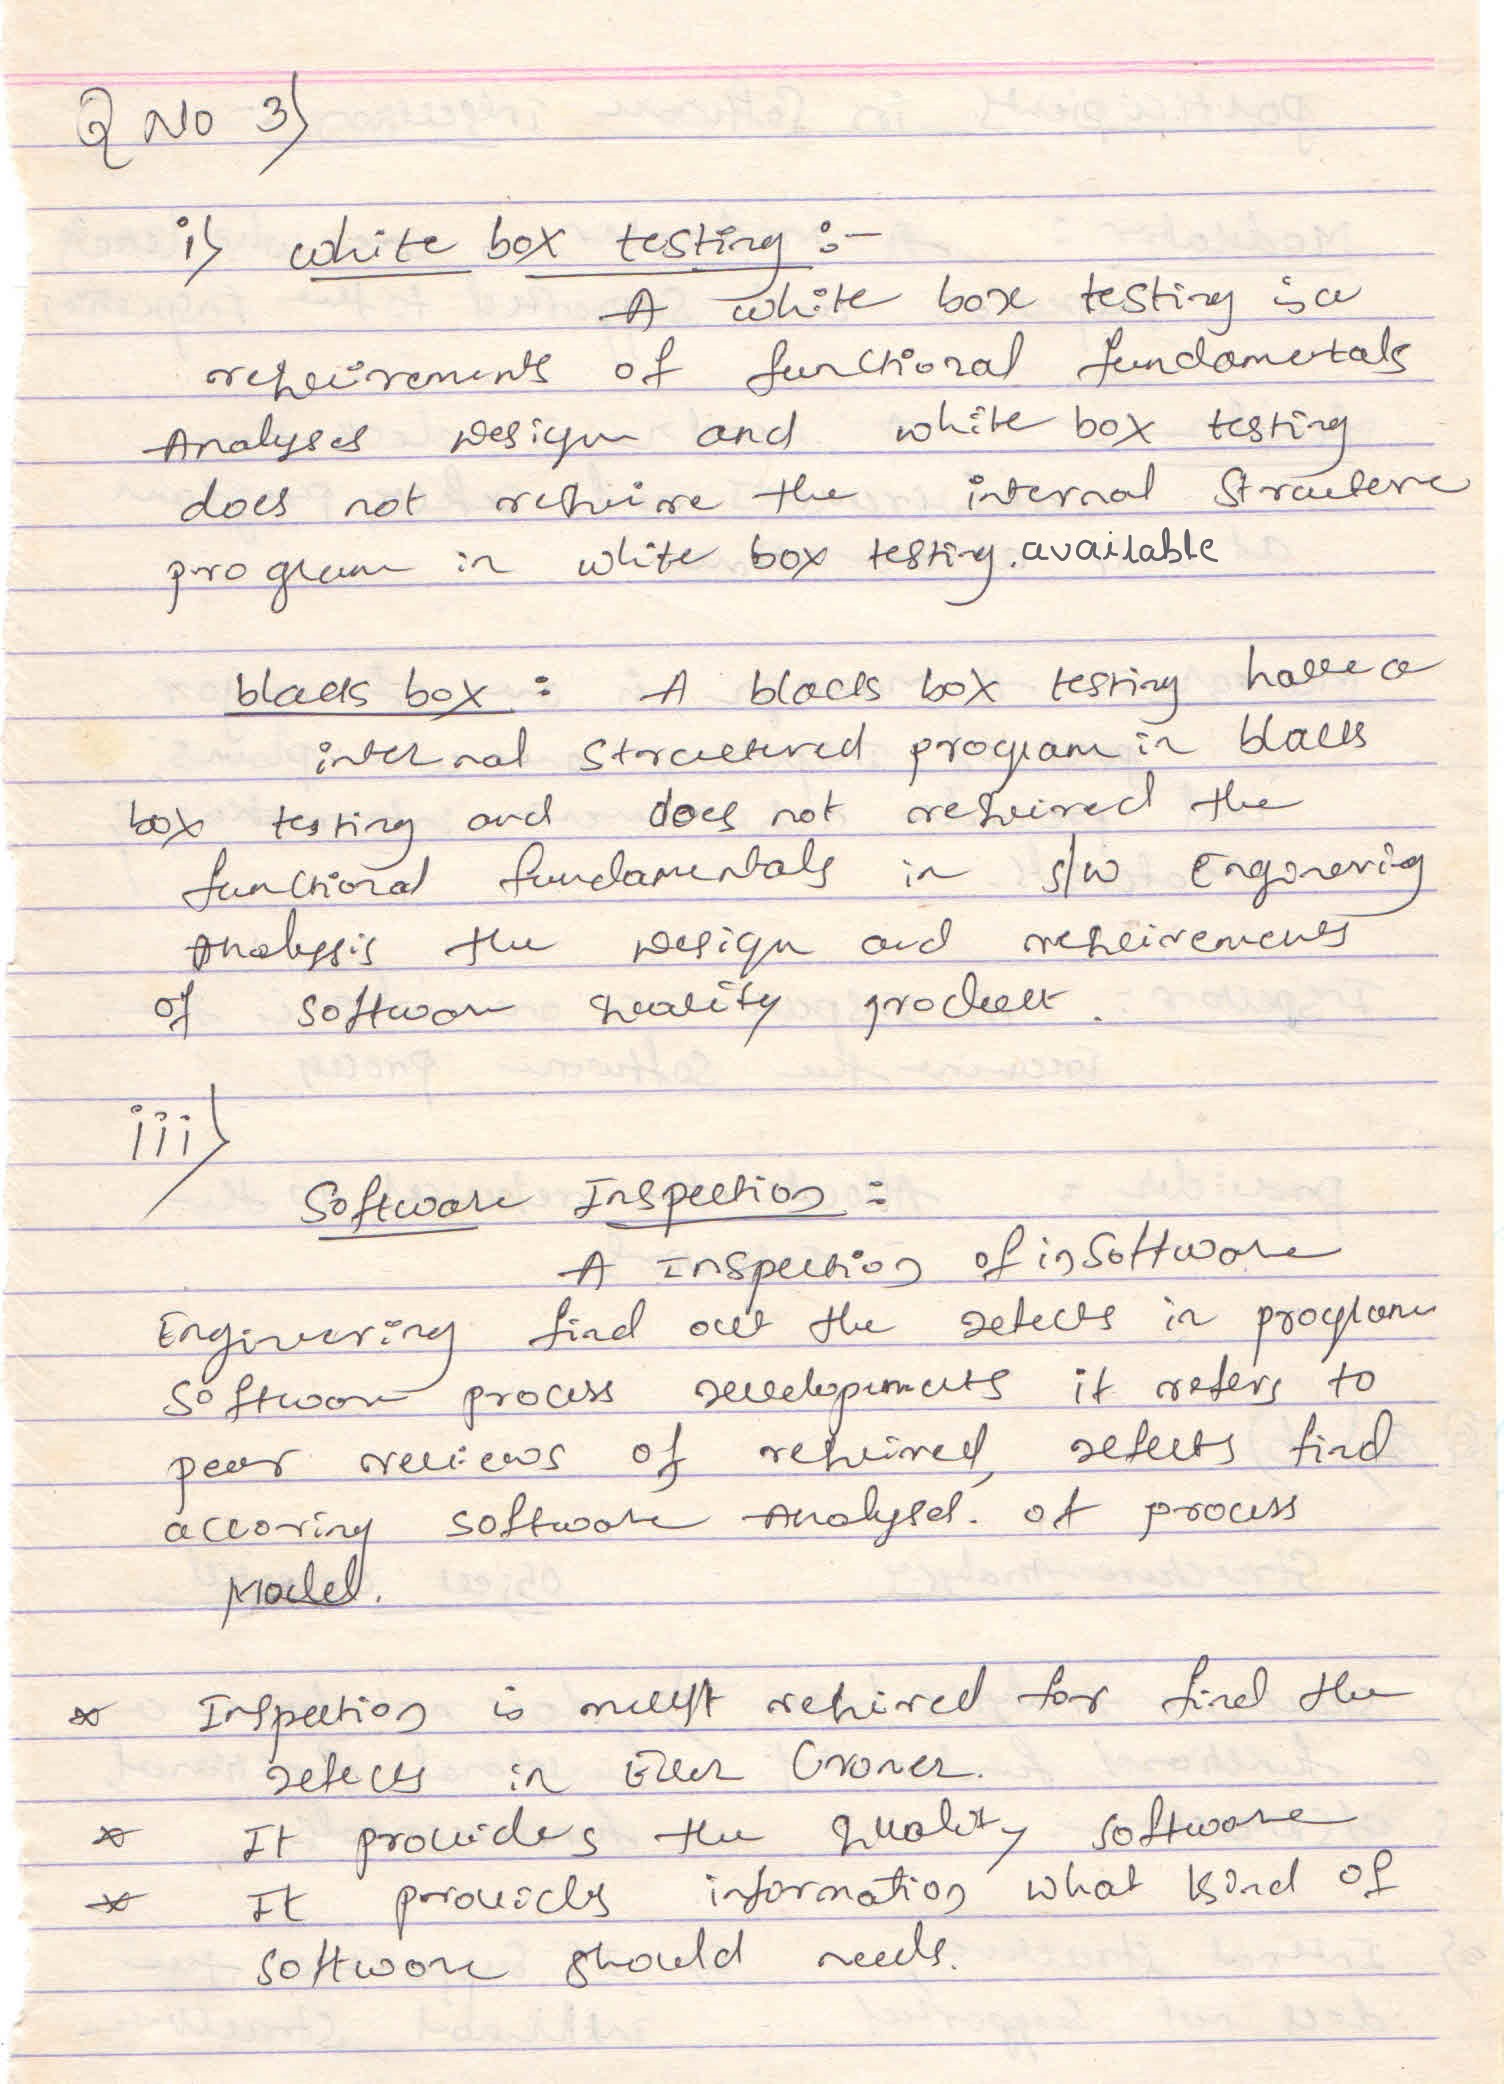 Q No 3)
i) white box testing :-
A white box testing is a
requirements of functional fundamentals
Analyses Design and white box testing
does not require the internal Structure
program in white box testing. available
black box : A black box testing have a
internal structured program in black
box testing and does not required the
functional fundamentals in s/w Enginering
Analysis the Design and requirements
of software quality product.
iii)
Software Inspection :
A Inspection of in Software
Enginering find out the defects in program
software process developments it refers to
peer reviews of required, defects find
accoring software Analysed. of process
Model.
* Inspection is must required for find the
defects in Croner.
* It provides the quality software
* It provides information what kind of
software should needs.